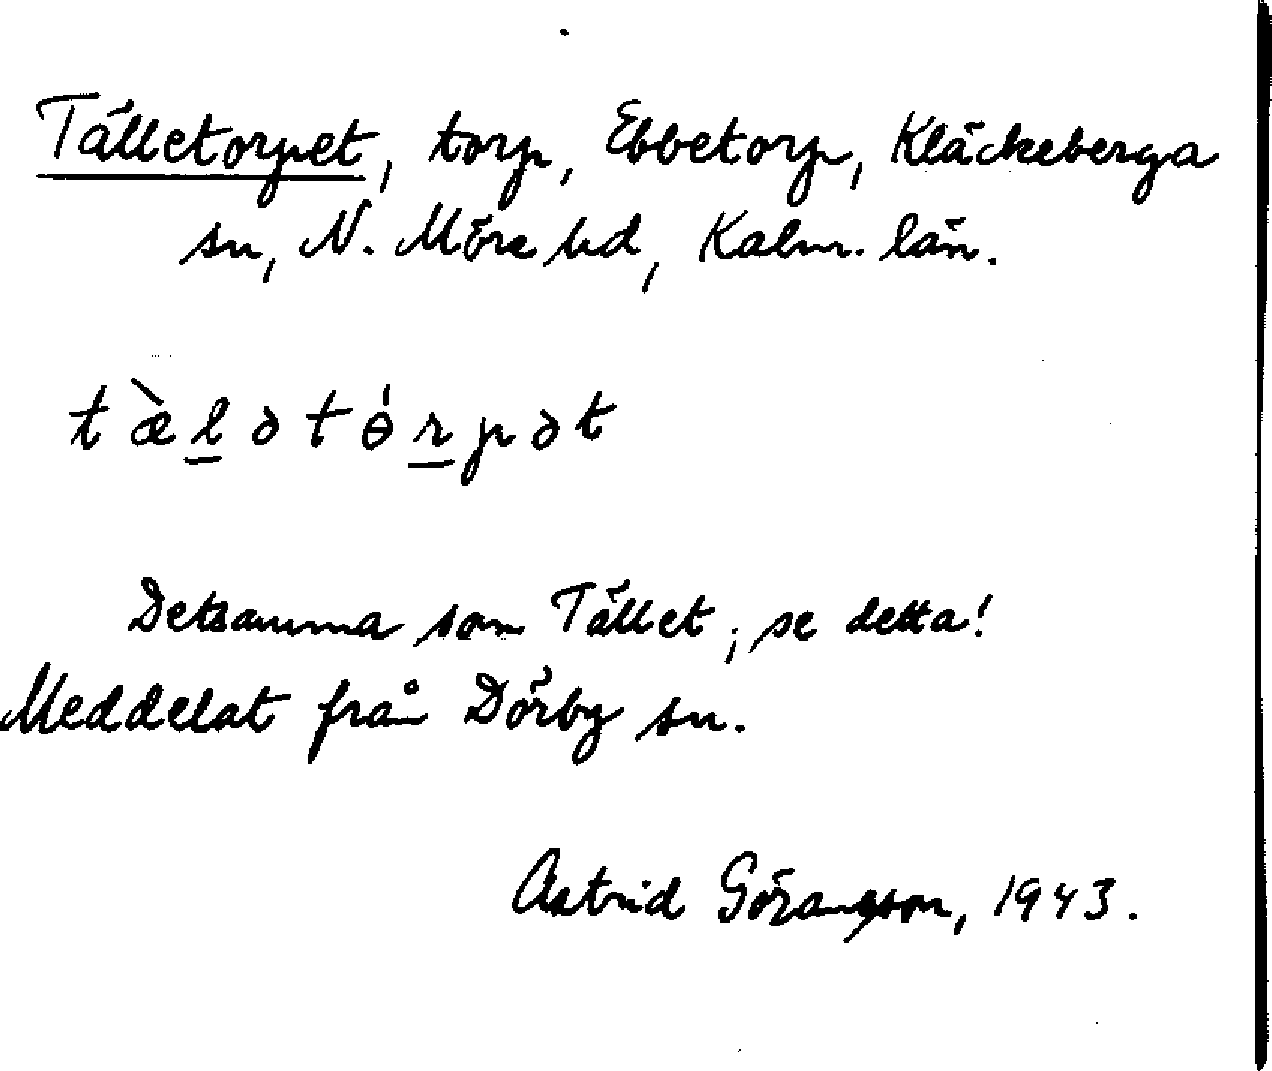 Tälletorpet, torp, Ebbetorp, Kläckeberga
sn, N. Möre hd, Kalm. län.
tæ̀l̲ətɵ́r̲pət
Detsamma som Tället, se detta!
Meddelat från Dörby sn.
Astrid Göransson, 1943.